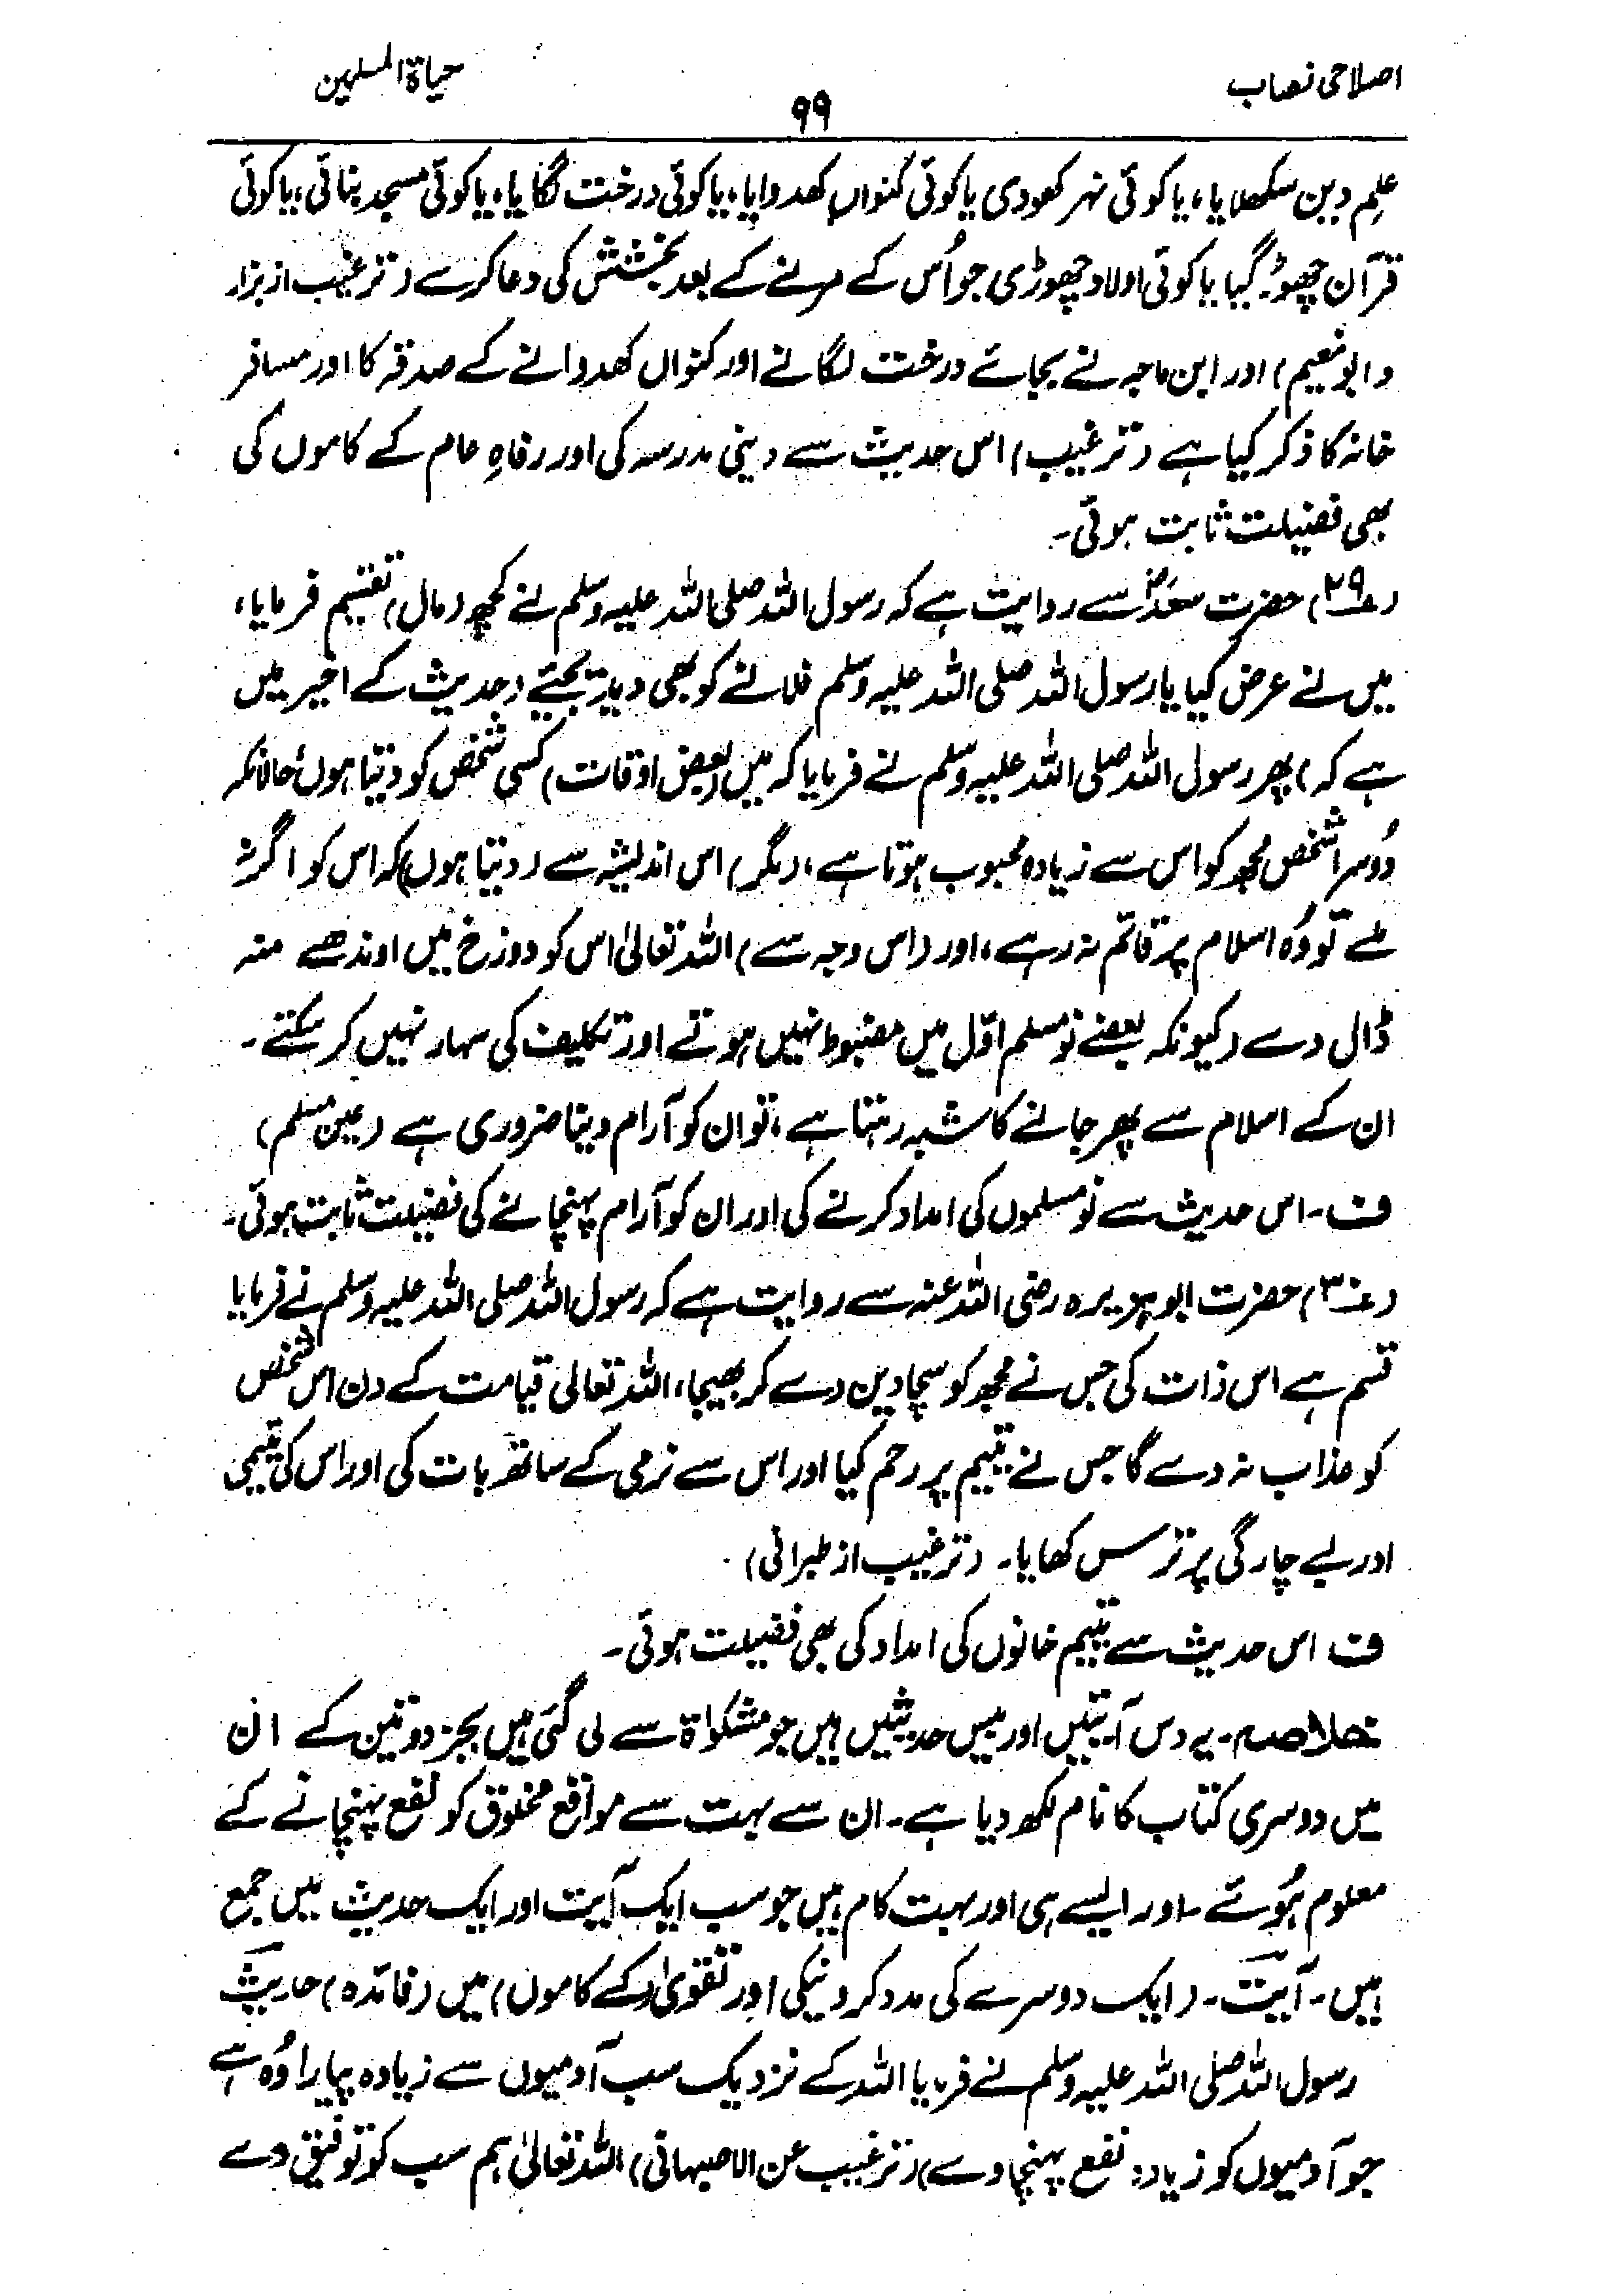 اصلاحی نصاب
۹۹
حیاۃ المسلمین
علمِ دین سکھلایا، یا کوئی نہر کھودی یا کوئی کنواں کھدوایا، یا کوئی درخت لگایا، یا کوئی مسجد بنائی، یا کوئی
قرآن چھوڑ گیا یا کوئی اولاد چھوڑی جو اُس کے مرنے کے بعد بخشش کی دعا کرے (ترغیب از بزار
و ابونعیم) اور ابن ماجہ نے بجائے درخت لگانے اور کنواں کھدوانے کے صدقہ کا اور مسافر
خانہ کا ذکر کیا ہے (ترغیب) اس حدیث سے دینی مدرسہ کی اور رفاہِ عام کے کاموں کی
بھی فضیلت ثابت ہوئی۔
(۲۹) حضرت سعدؓ سے روایت ہے کہ رسول اللہ صلی اللہ علیہ وسلم نے کچھ (مال) تقسیم فرمایا،
میں نے عرض کیا یا رسول اللہ صلی اللہ علیہ وسلم فلانے کو بھی دیدیجئے (حدیث کے اخیر میں
ہے کہ) پھر رسول اللہ صلی اللہ علیہ وسلم نے فرمایا کہ میں (بعض اوقات) کسی شخص کو دیتا ہوں حالانکہ
دُوسرا شخص مجھ کو اس سے زیادہ محبوب ہوتا ہے، (مگر) اس اندیشہ سے (دیتا ہوں) کہ اس کو اگر نہ
ملے تو وُہ اسلام پر قائم نہ رہے، اور (اس وجہ سے) اللہ تعالیٰ اس کو دوزخ میں اوندھے منہ
ڈال دے (کیونکہ بعضے نو مسلم اوّل میں مضبوط نہیں ہوتے اور تکلیف کی سہار نہیں کر سکتے۔
ان کے اسلام سے پھر جانے کا شبہ رہتا ہے، تو ان کو آرام دینا ضروری ہے (عین مسلم)
ف۔ اس حدیث سے نو مسلموں کی امداد کرنے کی اور ان کو آرام پہنچانے کی فضیلت ثابت ہوئی۔
(۳۰) حضرت ابوہریرہ رضی اللہ عنہ سے روایت ہے کہ رسول اللہ صلی اللہ علیہ وسلم نے فرمایا
قسم ہے اس ذات کی جس نے مجھ کو سچا دین دے کر بھیجا، اللہ تعالی قیامت کے دن اس شخص
کو عذاب نہ دے گا جس نے یتیم پر رحم کیا اور اس سے نرمی کے ساتھ بات کی اور اس کی یتیمی
اور بے چارگی پر ترس کھایا۔ (ترغیب از طبرانی)
ف اس حدیث سے یتیم خانوں کی امداد کی بھی فضیلت ہوئی۔
خلاصہ۔ یہ دس آیتیں اور بیس حدیثیں ہیں جو مشکواۃ سے لی گئی ہیں بجز دو تین کے ان
میں دوسری کتاب کا نام لکھ دیا ہے۔ ان سے بہت سے مواقع مخلوق کو نفع پہنچانے کے
معلوم ہُوئے۔ اور ایسے ہی اور بہت کام ہیں جو سب ایک آیت اور ایک حدیث میں جمع
ہیں۔ آیت۔ (ایک دوسرے کی مدد کرو نیکی اور تقویٰ (کے کاموں) میں (فائدہ) حدیث
رسول اللہ صلی اللہ علیہ وسلم نے فرمایا اللہ کے نزدیک سب آدمیوں سے زیادہ پیارا وُہ ہے
جو آدمیوں کو زیادہ نفع پہنچا وے) (ترغیب عن الاصبہانی) اللہ تعالیٰ ہم سب کو توفیق دے